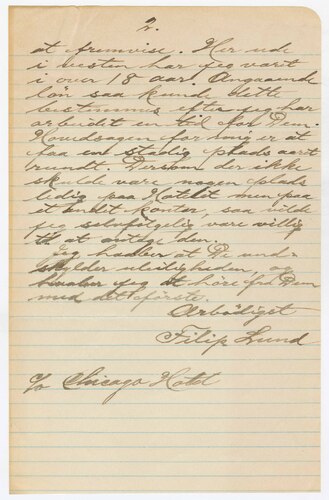 2.
at fremvise. Her ude
i vesten har jeg varit
i over 18 aar. Angaaende
løn saa kunde dette
bestemmes efter jeg har
arbeidet en tid hos Dem.
Hovedsagen for mig er at
faa en stadig plads aaret
rundt. Dersom der ikke
skulde vare nogen plads
ledig paa Hotelet men paa
et andet kontor, saa vilde
jeg selvfølgelig vare villig
til at antage den.
Jeg haaber at De und-
skylder uleiligheden, og
jeg at høre fra Dem
med det første.
Ærbødigst
Filip Lund
c/o Chicago Hotel